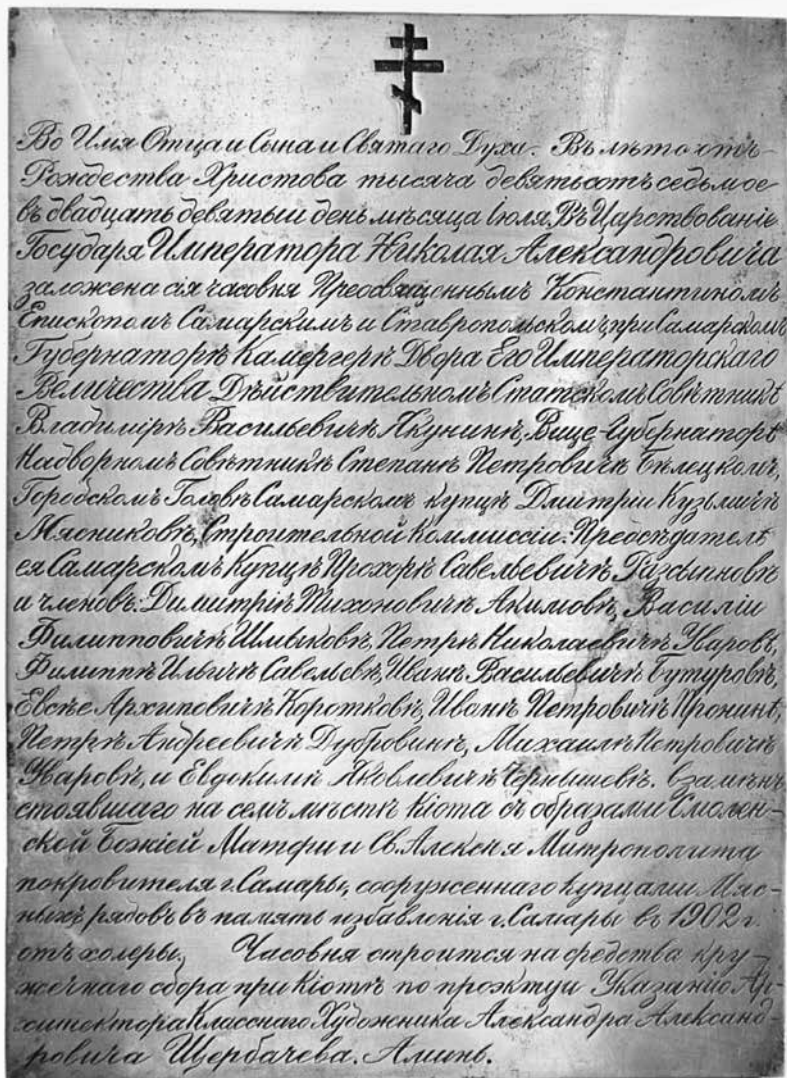 Во Имя Отца и Сына и Святаго Духа. Въ лѣто отъ
Рождества Христова тысяча девятьсотъ седьмое
въ двадцать девятыи день мѣсяца Іюля, Въ Царствованіе
Государя Императора Николая Александровича
заложена сія часовня Преосвященнымъ Константиномъ
Епископомъ Самарскимъ и Ставропольскомъ, при Самарскомъ
Губернаторѣ Камергерѣ Двора Его Императорскаго
Величества Дѣйствительномъ Статскомъ Совѣтникѣ
Владимірѣ Васильевичѣ Якунинѣ, Вице-Губернаторѣ
Надворномъ Совѣтникѣ Степанѣ Петровичѣ Бѣлецкомъ,
Городскомъ Головѣ Самарскомъ купцѣ Дмитріи Кузьмичѣ
Мясниковѣ, Строительной Коммиссіи: Предсѣдателѣ
ея Самарскомъ Купцѣ Прохорѣ Савельевичѣ Разсыпновѣ
и членовъ: Димитріѣ Тихоновичѣ Акимовѣ, Василіи
Филипповичѣ Шмыковѣ, Петрѣ Николаевичѣ Уваровѣ,
Филиппѣ Ильичѣ Савельевѣ, Иванѣ Васильевичѣ Бутуровѣ,
Евсѣе Архиповичѣ Коротковѣ, Иванѣ Петровичѣ Пронинѣ,
Петрѣ Андреевичѣ Дубровинѣ, Михаилѣ Петровичѣ
Уваровѣ, и Евдокимѣ Яковлевичѣ Чернышевѣ. Взамѣнъ
стоявшаго на семъ мѣстѣ Кіота съ образами Смолен-
ской Божіей Матери и Св. Алексѣя Митрополита
покровителя г. Самары, сооруженнаго купцами Мяс-
ныхъ рядовъ въ память избавленія г. Самары въ 1902 г.
отъ холеры. Часовня строится на средства кру-
жечнаго сбора при Кіотѣ по проэкту и Указанію Ар-
хитектора Класснаго Художника Александра Александ-
ровича Щербачева. Аминь.